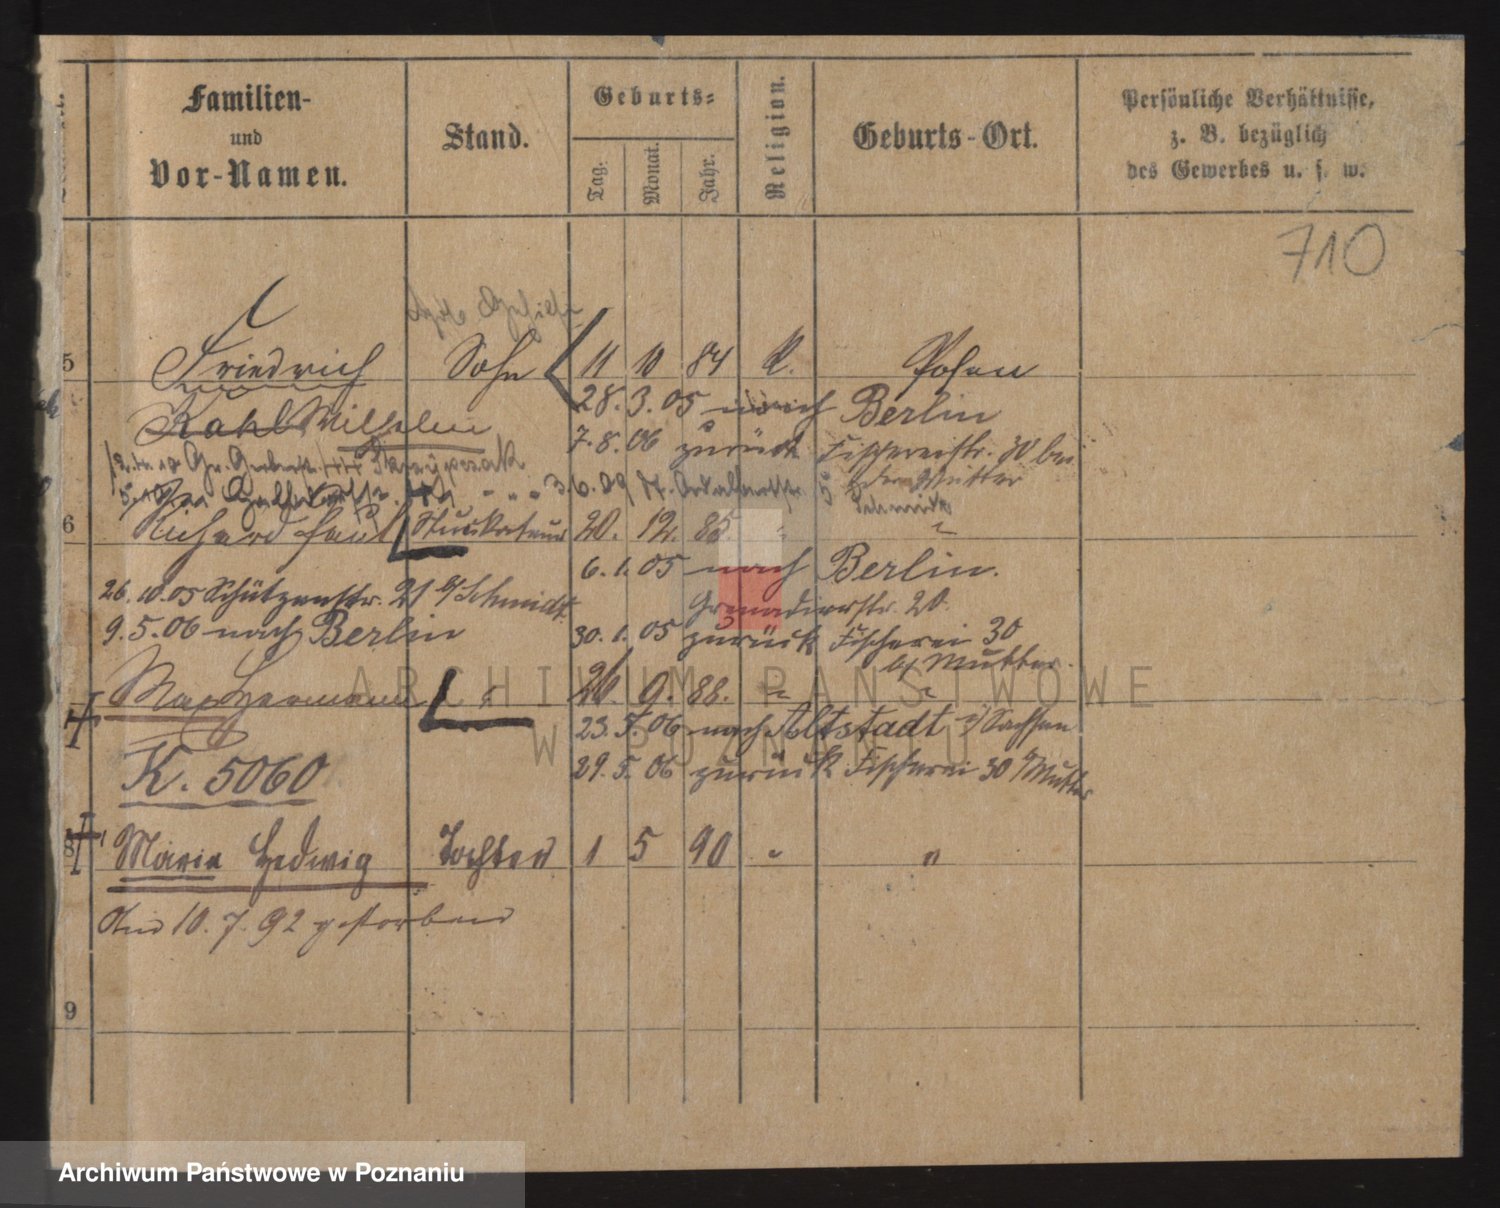 Familien-
und
Vor-Namen.
Stand.
Geburts-
Tag.
Monat.
Jahr.
Religion.
Geburts-Ort.
Persönliche Verhältnisse,
z. B. bezüglich
des Gewerbes u. s. w.
710
5 Friedrich Sohn 11 10 84 Posen
Wilhelm 28. 3. 05 nach Berlin
7. 8. 06 zurück Fischereistr. 30 bei
der Mutter
Schmidt
6 Richard Paul Stuckateur 20. 12. 85. "
6. 1. 05 nach Berlin.
Grenadierstr. 20.
26. 10. 05 Schützenstr. 21 b/Schmidt
9. 5. 06 nach Berlin
30. 1. 05 zurück Fischerei 30
b/ Mutter.
Max Hermann " 26. 9. 88. " "
23. 5. 06 nach Altstadt i/Sachsen
K. 5060
29. 5. 06 zurück Fischerei 30 b/Mutter
8 Maria Hedwig Tochter 1 5 90 " "
10. 7. 92 gestorben
9
ARCHIWUM PAŃSTWOWE
W POZNANIU
Archiwum Państwowe w Poznaniu